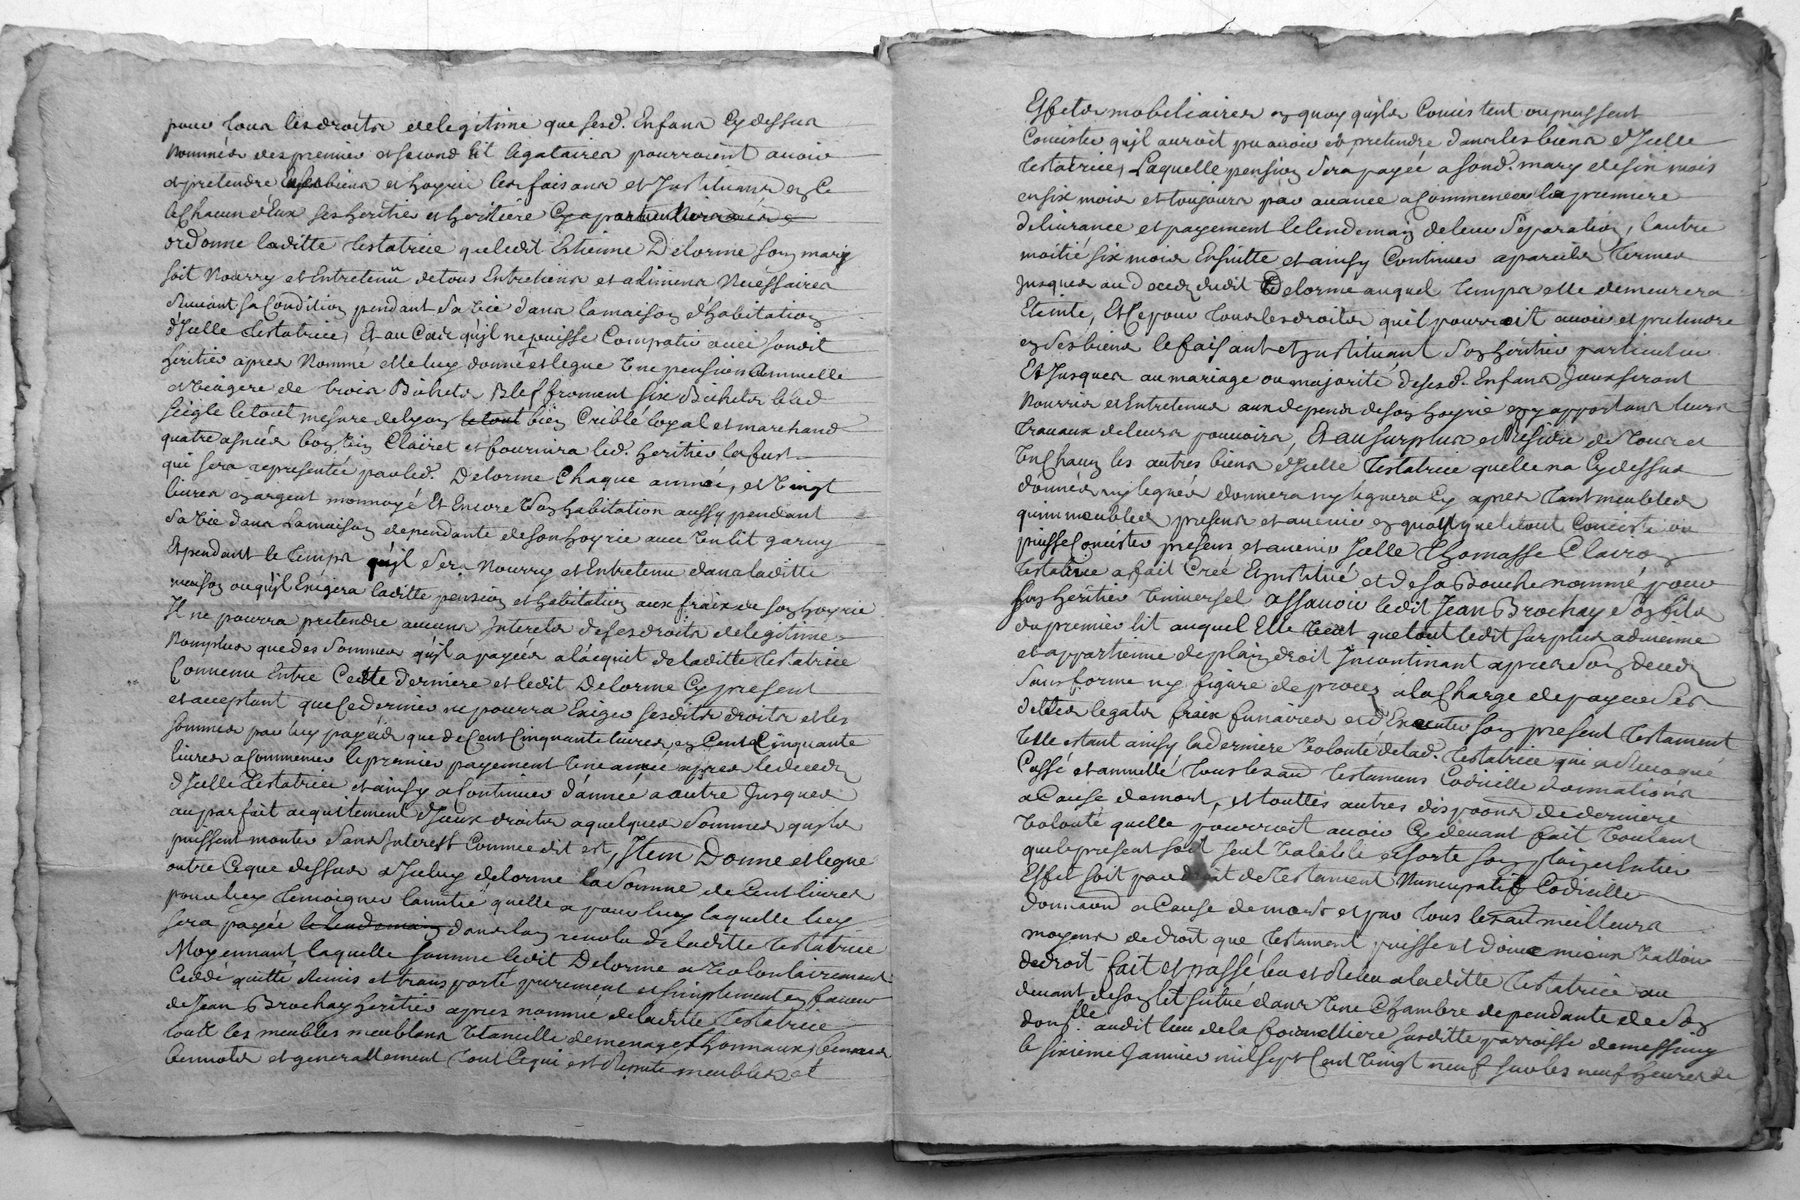 pour tous les droits de legitime que sesd. Enfans Cy dessus
Nommés des premier et second lit legataires pourroient avoir
et pretendre sur ses biens et hoyrie les faisans et Instituans en ce
le Chacun d'Eux ses heritier et heritiére Cy a particulier
ordonne laditte testatrice que ledit Estienne Delorme son mary
soit Nourry et Entretenü de tous Entretiens et alimens Necéssaires
suivant sa Condition pendant sa vie dans la maison d'habitation
d'Icelle testatrice, Et au Cas qu'jl ne puisse Compatir avec sondit
heritier apres Nommé elle luy donne et legue Une pension Annuelle
et viagere de trois Bichets Bled froment six Bichets bled
seigle le tout mesure de Lyon le tout bien Criblé loyal et marchand
quatre asnées bon vin Clairet et fournira led. heritier le fust
qui sera representée par led. Delorme Chaque année, et vingt
livres en argent monnoyé Et Encore son habitation aussy pendant
sa vie dans la maison dependante de son hoyrie avec Un lit garny
Et pendant le temps qu'jl sera Nourry et Entretenu dans laditte
maison ou qu'jl Exigera laditte pension et habitation aux fraix de son hoyrie
Il ne pourra pretendre aucuns Interets de ses droits de legitime
Nomplus que des sommes qu'jl a payées a l'acquit de laditte testatrice
Convenu Entre Cette derniere et ledit Delorme Cy present
et acceptant que Ce dernier ne pourra Exiger sesdits droits et les
sommes par luy payées que de Cent Cinquante livres en Cent Cinquante
livres a Commencer le premier payement Une année apres le deces
d'Icelle testatrice et ainsy a Continuer d'année a autre Jusques
au parfait acquittement d'Jceux droits a quelques sommes qu'jls
puissent monter sans Interest Comme dit est, Item Donne et legue
outre Ce que dessus a Jceluy delorme la somme de Cent livres
pour luy temoigner lamitié quelle a pour luy laquelle luy
sera payée le lendemain dans lan revolu de laditte testatrice
Moyennant laquelle somme ledit Delorme a volontairement
Ceddé quitté Remis et transporté purement et simplement en faveur
de Jean Brochay heritier apres nommé de laditte testatrice
tout les meubles meublans Utancille de menage
bennots et generallement tout Ce qui est Reputé meubles et
Effets mobiliaires en quoy qu'jls Concistent ou puissent
Concister qu'jl auroit pu avoir et pretendre dans les biens d'Jcelle
testatrice, Laquelle pension sera payée a sond. mary de six mois
en six mois et toujours par avance a Commencer la premiere
delivrance et payement le lendemain de leur separation, lautre
moitié six mois Ensuitte et ainsy Continuer a pareils termes
Jusques au deces dudit Delorme auquel temps elle demeurera
Eteinte, Et Ce pour tous les droits quil pourroit avoir et pretendre
en ses biens le faisant et Jnstituant son heritier particulier
Et Jusques au mariage ou majorité de sesd. Enfans Jceux seront
Nourris et Entretenus aux depens de son hoyrie en y apportant leurs
travaux de leurs pouvoirs, Et au surplus et Résidu de tous et
Un Chacun les autres biens d'Jcelle testatrice quelle na Cy dessus
donnés ny legués donnera ny leguera Cy apres tant meubles
quimmeubles presens et avenir en quoy que le tout Conciste ou
puisse Concister presens et avenir Jcelle thomasse Clairon
testatrice a fait Creé Et Jnstitué et de sa Bouche nommé pour
son heritier Universel assavoir ledit Jean Brochay son fils
du premier lit auquel Elle veut que tout ledit surplus advienne
et appartienne de plain droit Jncontinant apres son deces
sans forme ny figure de procez a la Charge de payer ses
dettes legats fraix funaires et d'Executer son present testament
telle estant ainsy la derniere volonté de lad. testatrice qui a Revoqué
Cassé et annullé tous les aud testamens Codicille donnations
a Cause de mort, et touttes autres dispoons de derniere
volonté quelle pourroit avoir Cy devant fait voulant
que le present soit seul valable et sorte son plain et entier
Effet soit par droit de testament Nuncupatif Codicille
donnaon a Cause de mort et par tous les aut meilleurs
moyens de droit que testament puisse et doive mieux valloir
de droit fait et passé leu et Releu a laditte testatrice au
devant de son lit situé dans Une Chambre dependante de son
domlle. audit lieu de la susditte parroisse de messimy
le sixieme Janvier mil sept Cent vingt neuf sur les neuf heures de